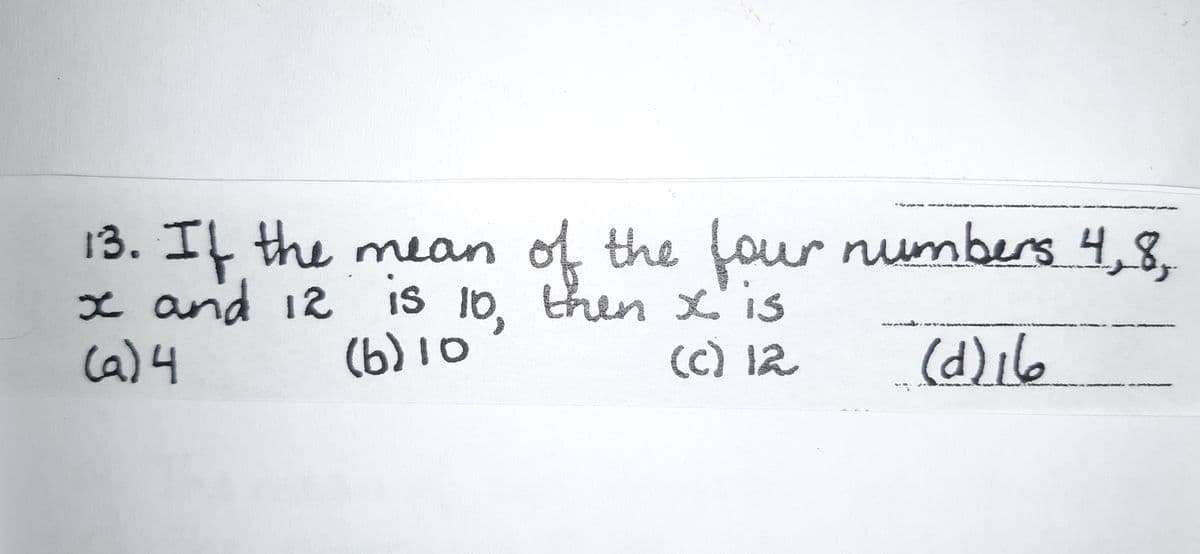 13. If the mean of the four numbers 4, 8,
x and 12 is 10, then x is
(a) 4 (b) 10 (c) 12 (d) 16